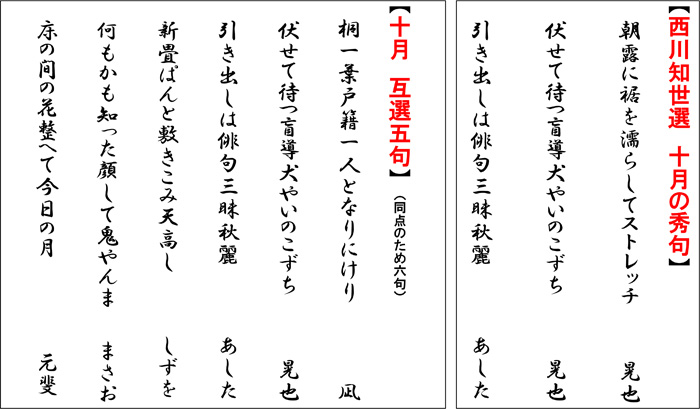 【西川知世選　十月の秀句】
朝露に裾を濡らしてストレッチ　晃也
伏せて待つ盲導犬やいのこずち　晃也
引き出しは俳句三昧秋麗　あした
【十月　互選五句】（同点のため六句）
桐一葉戸籍一人となりにけり　凪
伏せて待つ盲導犬やいのこずち　晃也
引き出しは俳句三昧秋麗　あした
新畳ぱんと敷きこみ天高し　しずを
何もかも知った顔して鬼やんま　まさお
床の間の花整へて今日の月　元斐